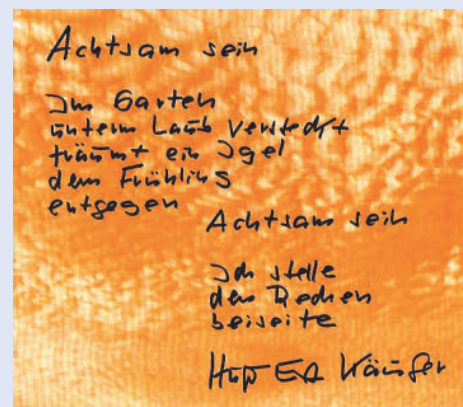 Achtsam sein
Im Garten
unterm Laub versteckt
träumt ein Igel
dem Frühling
entgegen
Achtsam sein
Ich stelle
den Rechen
beiseite
Käufer